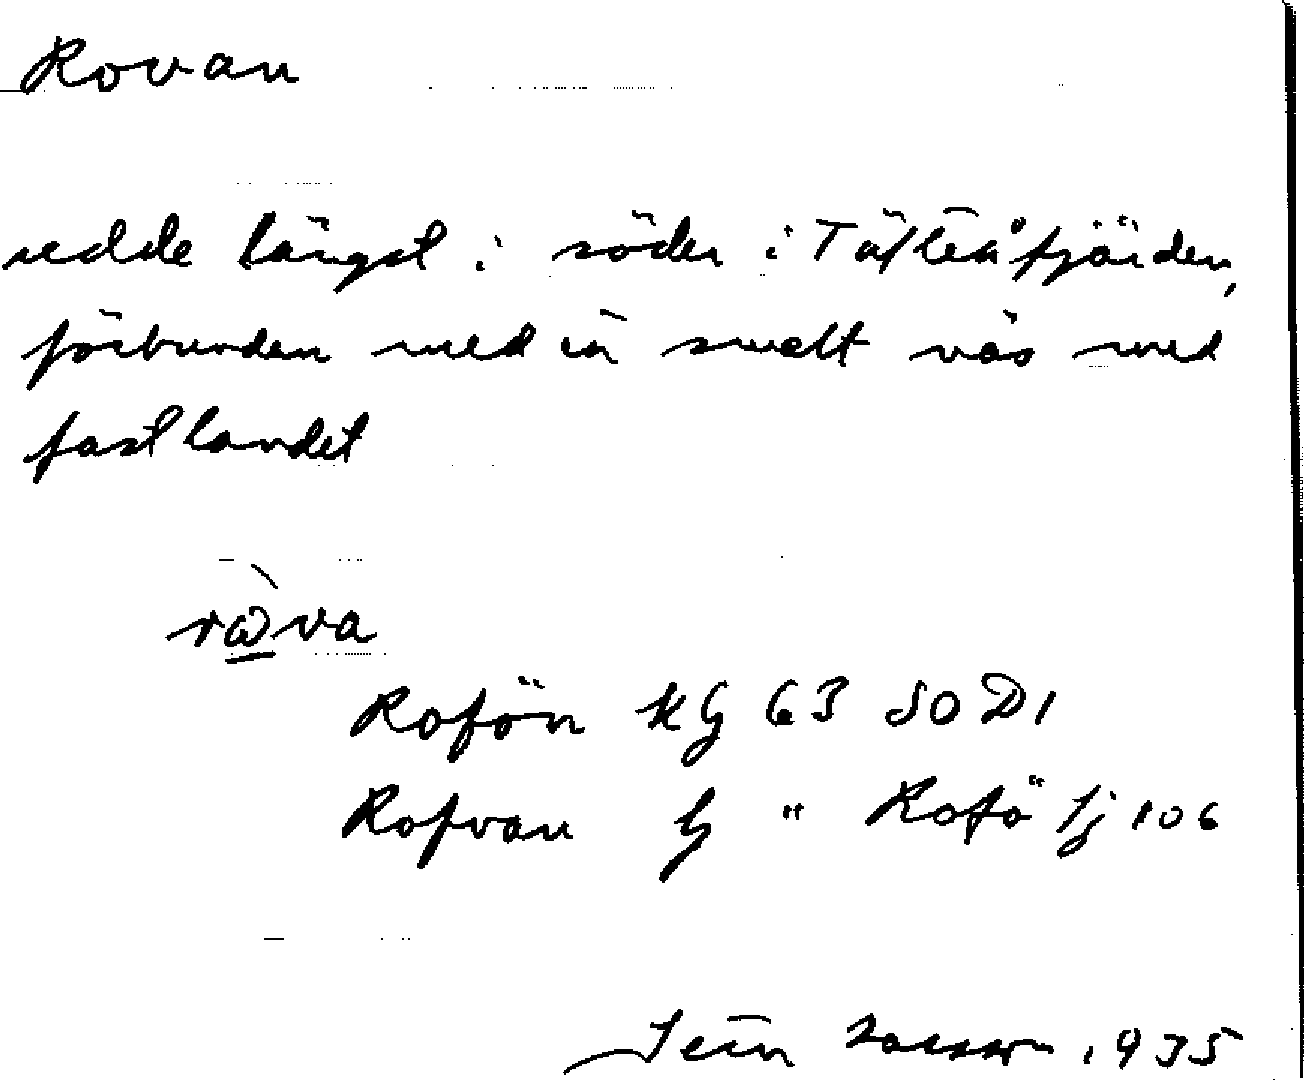 Rovan
udde längst i söder i Täfteåfjärden,
förbunden med en smalt näs med
fastlandet
Rofön KG 63 SO D1
Rofvan G " Rofö Tj 106
1935